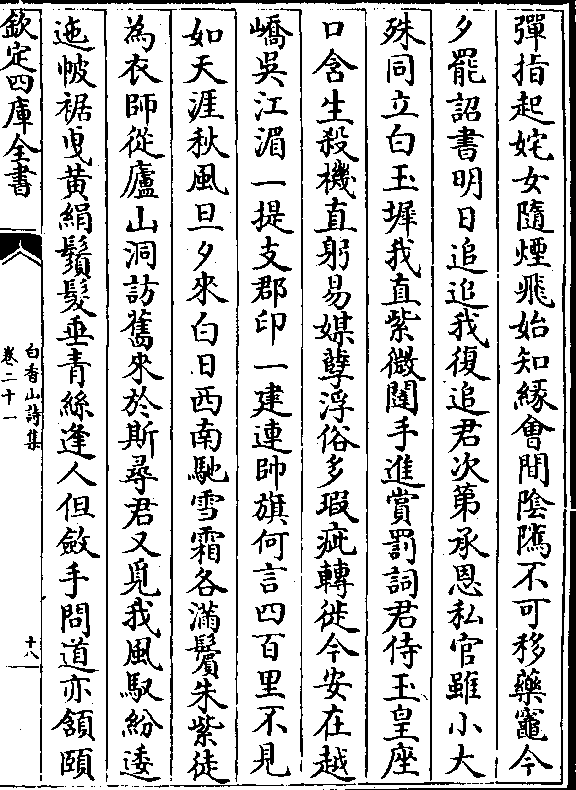 彈指起姹女隨煙飛始知縁會間陰隲不可移藥竈今
夕罷詔書明日追追我復追君次第承恩私官雖小大
殊同立白玉墀我直紫微闥手進賞罰詞君侍玉皇座
口含生殺機直躬易媒孽浮俗多瑕疵轉徙今安在越
嶠吳江湄一提支郡印一建連帥旗何言四百里不見
如天涯秋風旦夕來白日西南馳雪霜各滿鬢朱紫徒
為衣師從廬山洞訪舊來於斯尋君又覓我風馭紛逶
迤帔裾曵黄絹鬚髮垂青絲逢人但斂手問道亦頷頤
欽定四庫全書
白香山詩集
卷二十一
十八